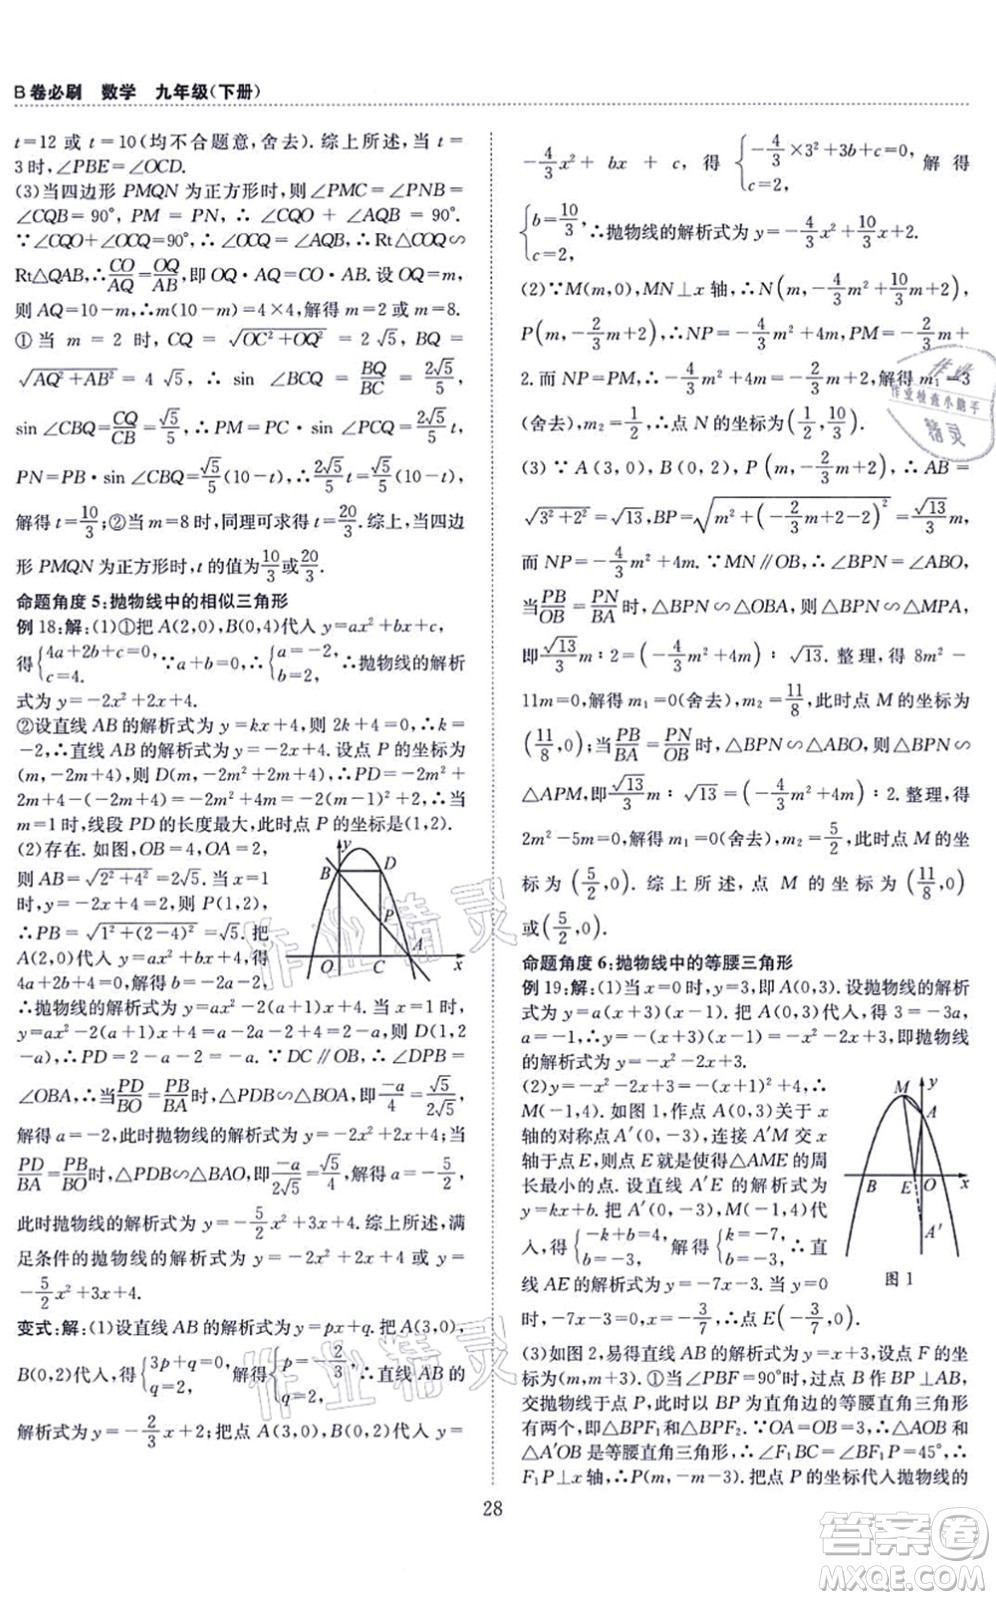 B 卷必刷　数学　九年级(下册)
t=12 或 t=10(均不合题意,舍去). 综上所述,当 t=
3 时,∠PBE=∠OCD.
(3)当四边形 PMQN 为正方形时,则∠PMC=∠PNB
=∠CQB=90°, PM = PN, ∴∠CQO + ∠AQB=90°.
∵∠CQO+∠OCQ=90°,∴∠OCQ=∠AQB,∴Rt△COQ∽
Rt△QAB,∴CO/AQ=OQ/AB,即 OQ·AQ=CO·AB. 设 OQ=m,
则 AQ=10-m,∴m(10-m)=4×4,解得 m=2 或 m=8.
①当 m = 2 时, CQ = √(OC²+OQ²) = 2√5, BQ =
√(AQ²+AB²) = 4√5, ∴ sin ∠BCQ = BQ/BC = 2√5/5,
sin∠CBQ=CQ/CB=√5/5,∴PM=PC·sin∠PCQ=2√5/5 t,
PN=PB·sin∠CBQ=√5/5(10-t),∴2√5/5 t=√5/5(10-t),
解得 t=10/3;②当 m=8 时,同理可求得 t=20/3. 综上,当四边
形 PMQN 为正方形时,t 的值为10/3或20/3.
命题角度 5:抛物线中的相似三角形
例 18:解:(1)①把 A(2,0),B(0,4)代入 y=ax²+bx+c,
得{4a+2b+c=0, c=4. ∵a+b=0,∴{a=-2, b=2, ∴抛物线的解析
式为 y=-2x²+2x+4.
②设直线 AB 的解析式为 y=kx+4,则 2k+4=0,∴k=
-2,∴直线 AB 的解析式为 y=-2x+4. 设点 P 的坐标为
(m,-2m+4),则 D(m,-2m²+2m+4),∴PD=-2m²+
2m+4-(-2m+4)=-2m²+4m=-2(m-1)²+2,∴当
m=1 时,线段 PD 的长度最大,此时点 P 的坐标是(1,2).
(2)存在. 如图,OB=4,OA=2,
则 AB=√(2²+4²)=2√5. 当 x=1
时,y=-2x+4=2,∴P(1,2),
∴PB=√(1²+(2-4)²)=√5. 把
A(2,0)代入 y=ax²+bx+4,得
4a+2b+4=0,解得 b=-2a-2,
∴抛物线的解析式为 y=ax²-2(a+1)x+4. 当 x=1 时,
y=ax²-2(a+1)x+4=a-2a-2+4=2-a,∴D(1,2
-a),∴PD=2-a-2=-a. ∵DC∥OB, ∴∠DPB=
∠OBA,∴当PD/BO=PB/BA时,△PDB∽△BOA,即-a/4=√5/2√5,
解得 a=-2,此时抛物线的解析式为 y=-2x²+2x+4;当
PD/BA=PB/BO时,△PDB∽△BAO,即-a/2√5=√5/4,解得 a=-5/2,
此时抛物线的解析式为 y=-5/2x²+3x+4. 综上所述,满
足条件的抛物线的解析式为 y=-2x²+2x+4 或 y=
-5/2x²+3x+4.
变式:解:(1)设直线 AB 的解析式为 y=px+q. 把 A(3,0),
B(0,2)代入,得{3p+q=0, q=2, 解得{p=-2/3, q=2, ∴直线 AB 的
解析式为 y=-2/3x+2;把点 A(3,0),B(0,2)代入 y=
y
B
D
P
A
O
C
x
-4/3x²+bx+c, 得 {-4/3×3²+3b+c=0, c=2, 解得
{b=10/3, c=2, ∴抛物线的解析式为 y=-4/3x²+10/3x+2.
(2)∵M(m,0),MN⊥x 轴,∴N(m,-4/3m²+10/3m+2),
P(m,-2/3m+2),∴NP=-4/3m²+4m,PM=-2/3m+
2. 而 NP=PM,∴-4/3m²+4m=-2/3m+2,解得 m₁=3
(舍去),m₂=1/2,∴点 N 的坐标为(1/2,10/3).
(3)∵A(3,0),B(0,2),P(m,-2/3m+2),∴AB=
√(3²+2²)=√13,BP=√(m²+(-2/3m+2-2)²)=√13/3m,
而 NP=-4/3m²+4m. ∵MN∥OB,∴∠BPN=∠ABO,
当PB/OB=PN/BA时,△BPN∽△OBA,则△BPN∽△MPA,
即√13/3m∶2=(-4/3m²+4m)∶√13. 整理,得 8m²-
11m=0,解得 m₁=0(舍去),m₂=11/8,此时点 M 的坐标为
(11/8,0);当PB/BA=PN/OB时,△BPN∽△ABO,则△BPN∽
△APM,即√13/3m∶√13=(-4/3m²+4m)∶2. 整理,得
2m²-5m=0,解得 m₁=0(舍去),m₂=5/2,此时点 M 的坐
标为(5/2,0). 综上所述,点 M 的坐标为(11/8,0)
或(5/2,0).
命题角度 6:抛物线中的等腰三角形
例 19:解:(1)当 x=0 时,y=3,即 A(0,3). 设抛物线的解析
式为 y=a(x+3)(x-1). 把 A(0,3)代入,得 3=-3a,
a=-1,∴y=-(x+3)(x-1)=-x²-2x+3,即抛物线
的解析式为 y=-x²-2x+3.
(2)y=-x²-2x+3=-(x+1)²+4,∴
M(-1,4). 如图 1,作点 A(0,3)关于 x
轴的对称点 A′(0,-3),连接 A′M 交 x
轴于点 E,则点 E 就是使得△AME 的周
长最小的点. 设直线 A′E 的解析式为
y=kx+b. 把 A′(0,-3),M(-1,4)代
入,得{-k+b=4, b=-3, 解得{k=-7, b=-3, ∴直
线 AE 的解析式为 y=-7x-3. 当 y=0
时,-7x-3=0,x=-3/7,∴点 E(-3/7,0).
M
y
A
B
E
O
x
A′
图 1
(3)如图 2,易得直线AB的解析式为 y=x+3. 设点 F 的坐标
为(m,m+3). ①当∠PBF=90°时,过点 B 作 BP⊥AB,
交抛物线于点 P,此时以 BP 为直角边的等腰直角三角形
有两个,即△BPF₁和△BPF₂. ∵OA=OB=3,∴△AOB 和
△A′OB 是等腰直角三角形,∴∠F₁BC=∠BF₁P=45°,∴
F₁P⊥x 轴,∴P(m,-m-3). 把点 P 的坐标代入抛物线的
28
作业精灵
作业精灵
作业
作业检查小助手
精灵
答案卷
MXQE.COM